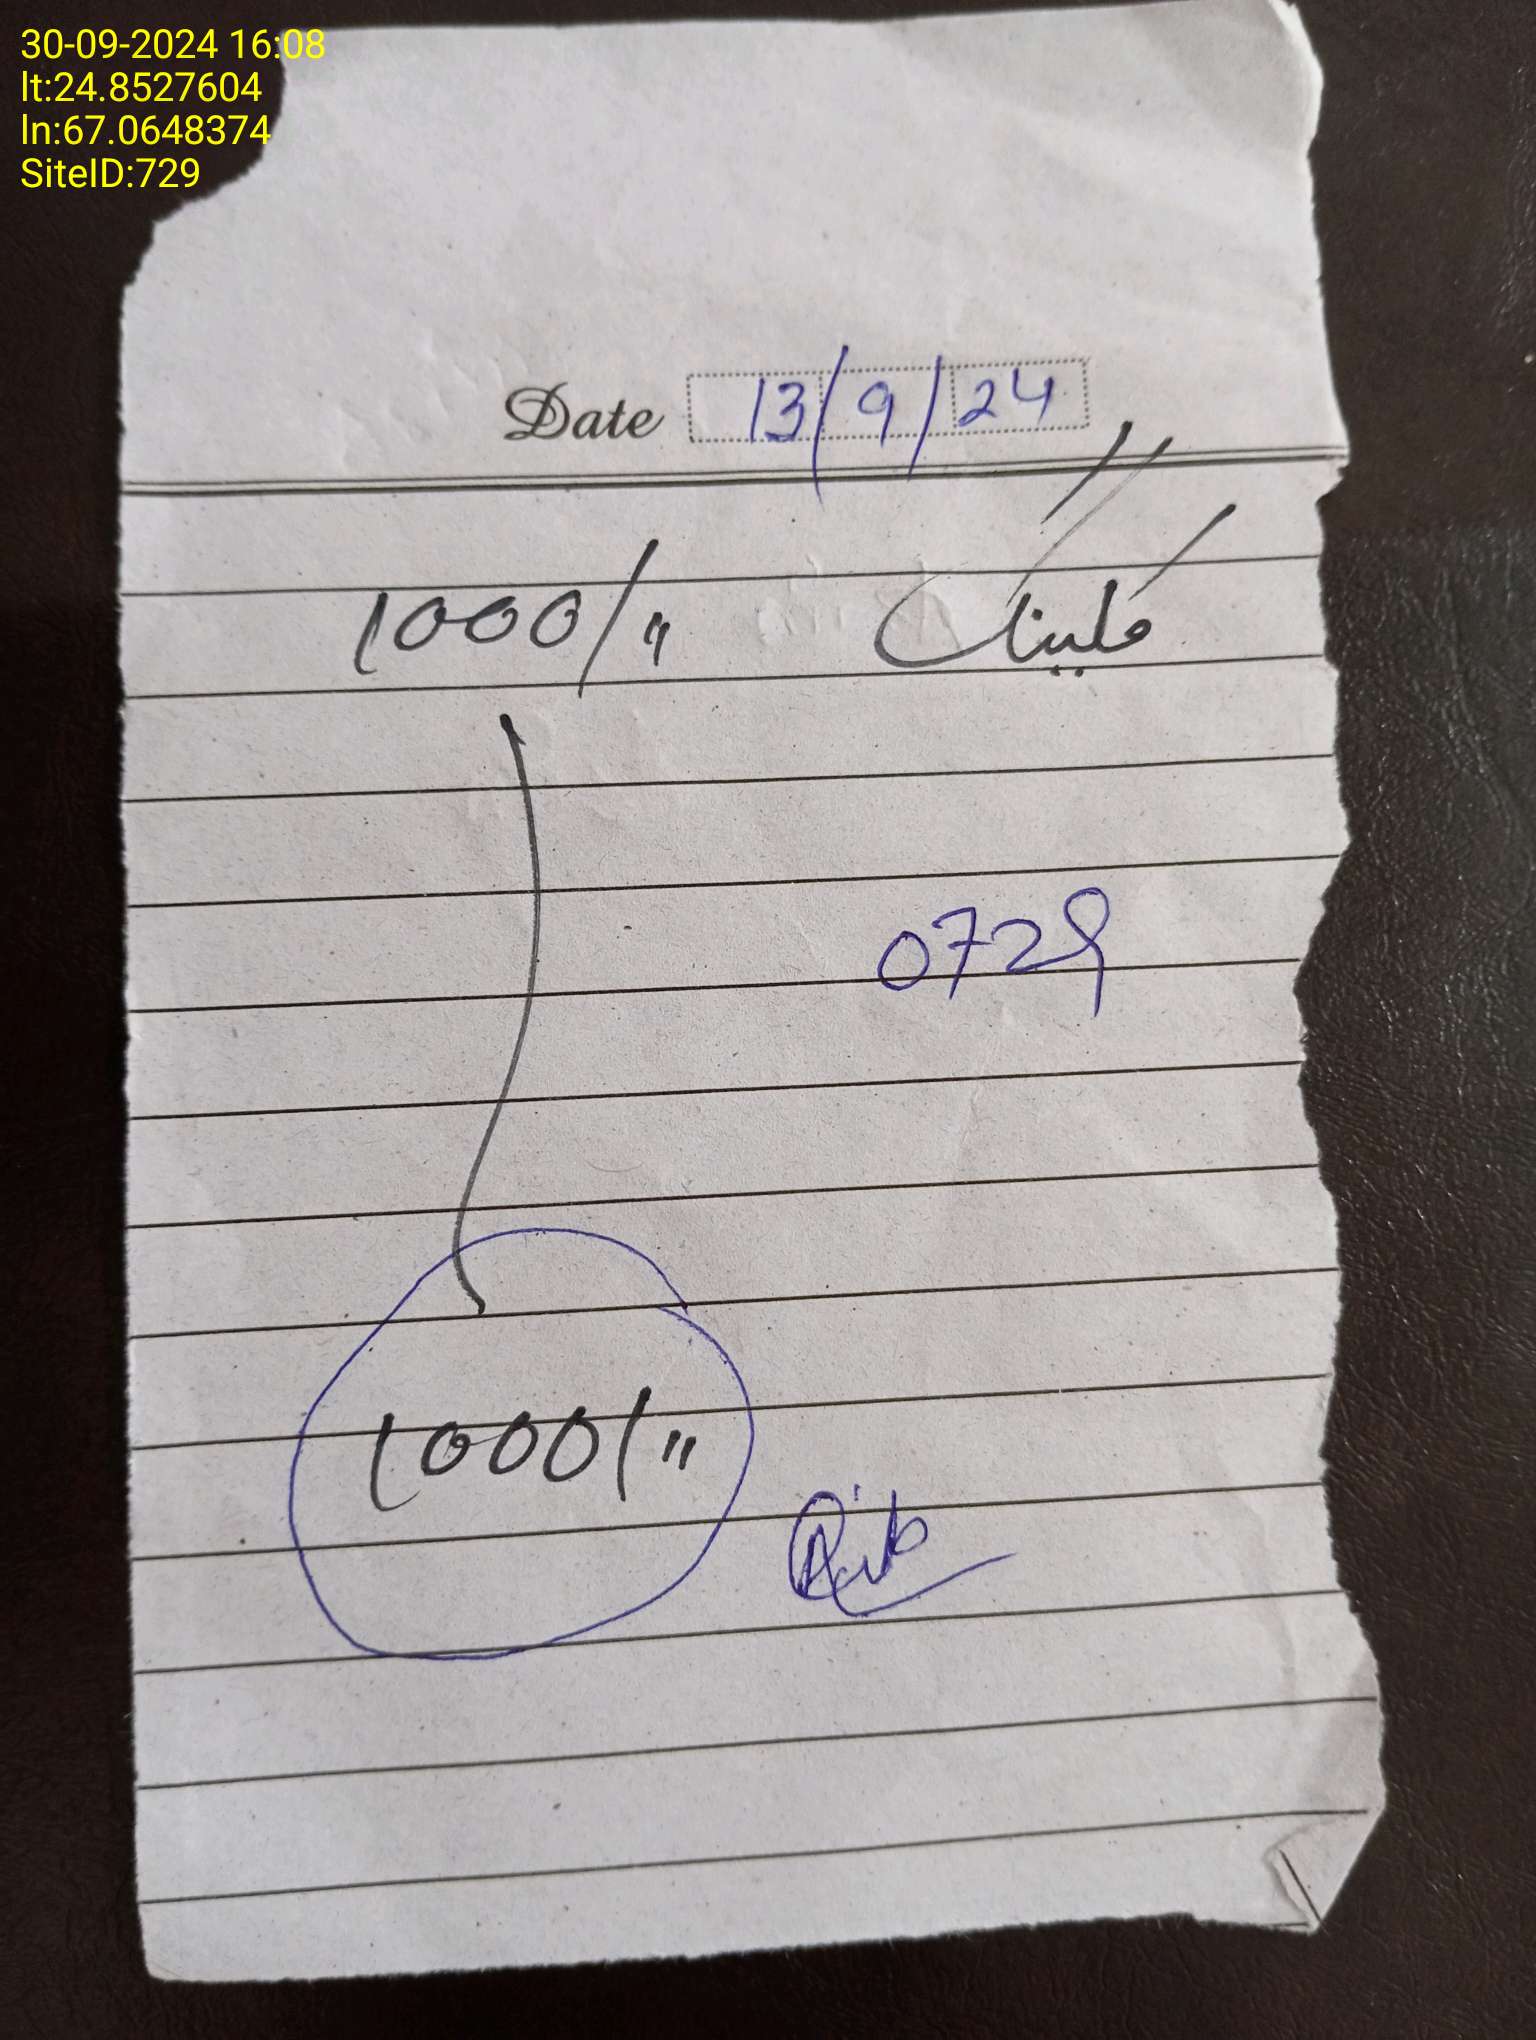 30-09-2024 16:08
lt:24.8527604
ln:67.0648374
SiteID:729
Date 13/9/24
کلینگ 1000/"
0729
1000/"